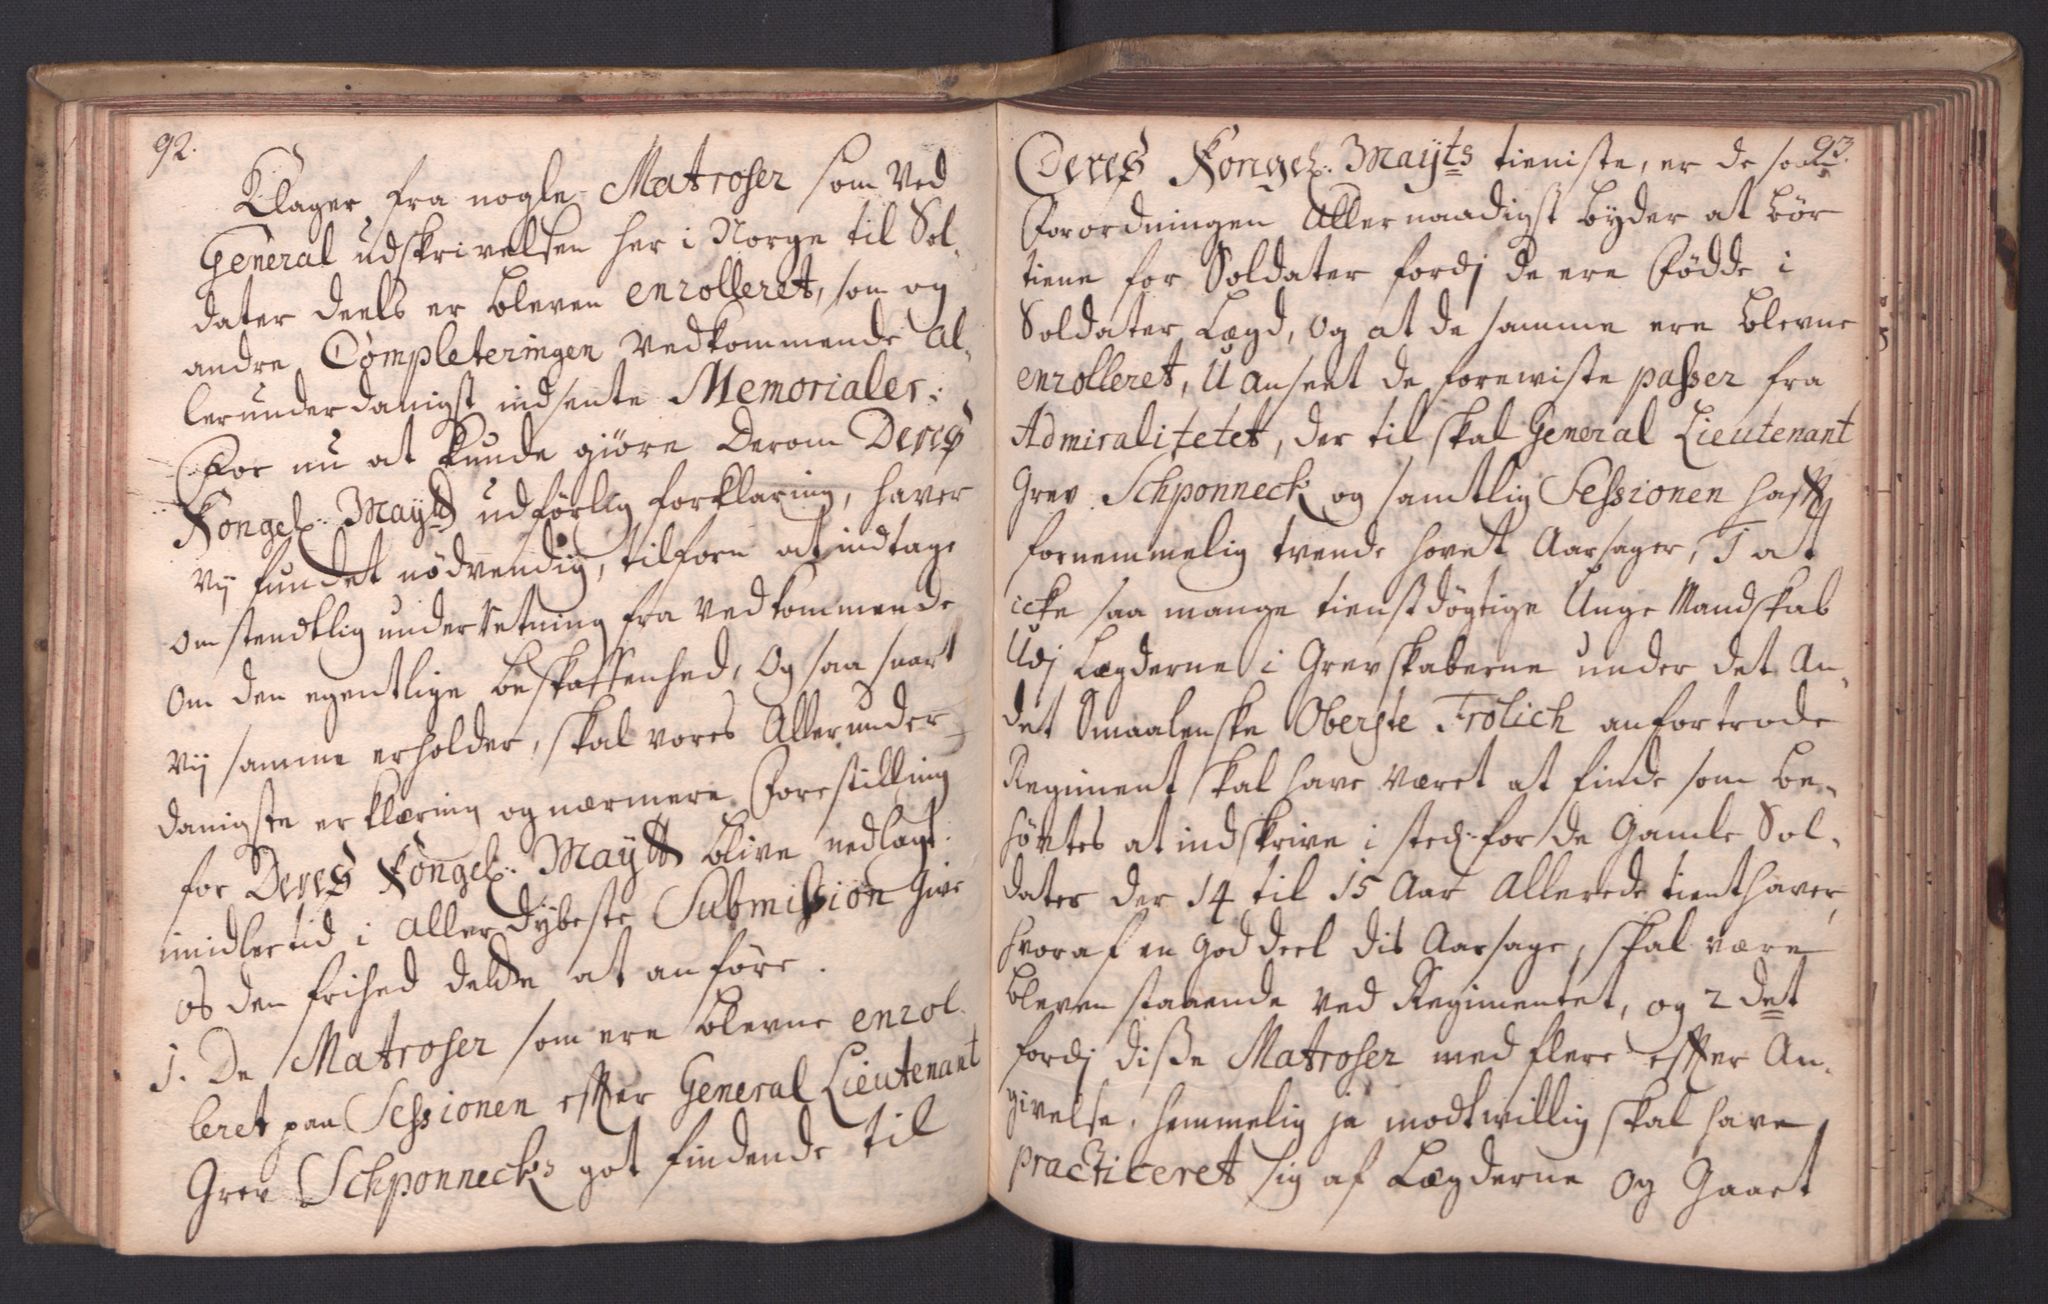 92.
Klager fra nogle Matroser som Ved
General udskrivelsen her i Norge til Sol-
dater deels er bleven enrolleret, som og
andre Completeringen Vedkommende al-
lerunderdanigst indsente Memorialer:
For nu at kunde giøre derom Deres
Kongel: Maytt udførlig forklaring, haver
vij fundet nødvendig, tilforn at indtage
omstendtlig underretning fra vedkommende
om den egentlige beskaffenhed, og saa snart
vij samme erholder, skal vores Allerunder-
danigste erklæring og nærmere Forestilling
for Deres Kongel: Maytt blive nedlagt.
imidlertid i aller dybeste Submission give
os den frihed dette at anføre.
1. De Matroser som ere blevne enrol-
leret paa Sessionen effter General Lieutenant
Grev Schponnecks got findende til
93.
Deres Kongel: Mayts tieniste, er de som
Forordningen Allernaadigst byder at bør
tiene for Soldater fordj de ere Fødde i
Soldater Lægd, og at de samme ere blevne
enrolleret, Uanseet de foreviste passer fra
Admiralitetet, der til skal General Lieutenant
Grev Schponneck og samtlig Sessionen hafft
fornemmelig tvende hovet Aarsager, 1 at
icke saa mange tienstdøgtige Unge Mandskab
Udj Lægderne i Grevskaberne under det An-
det Smaalenske Oberste Frolich anfortrode
Regiment skal have været at finde som be-
høvtes at indskrive i sted for de gamle Sol-
dater der 14 til 15 Aar Allerede tient haver,
hvoraf en god deel dis Aarsage, skal være
bleven staaende ved Regimentet, og 2 det
fordj disse Matroser med flere effter An-
givelse, hemmelig ja modtwillig skal have
practiceret sig af Lægderne og Gaaet